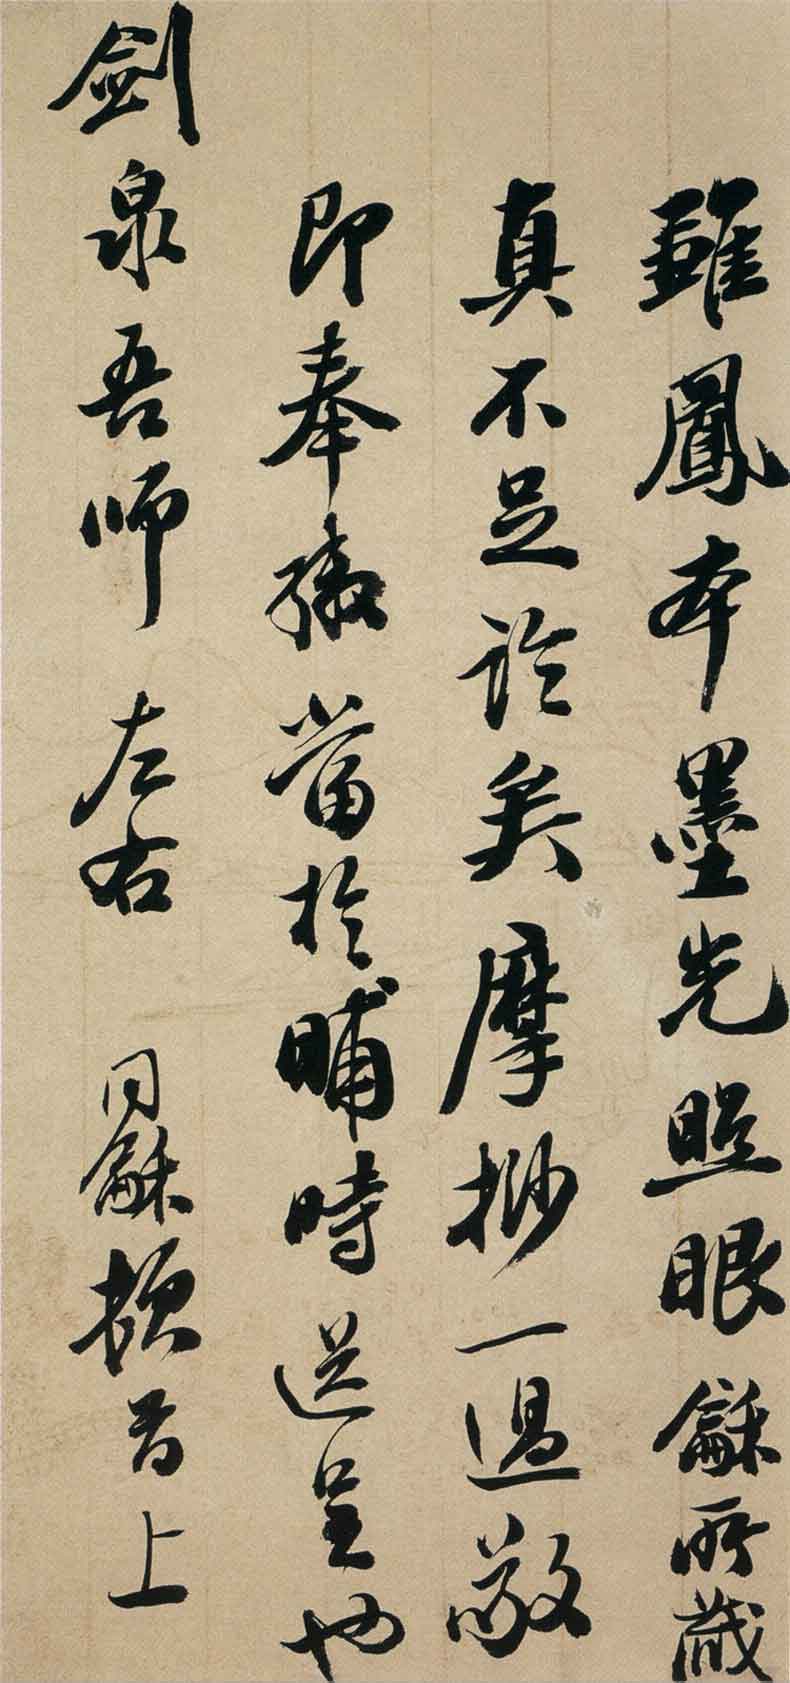 雖鳳本墨光照眼龢所藏
真不足論矣摩挱一過敬
即奉繳當於晡時送呈也
劍泉吾師左右 同龢頓首上